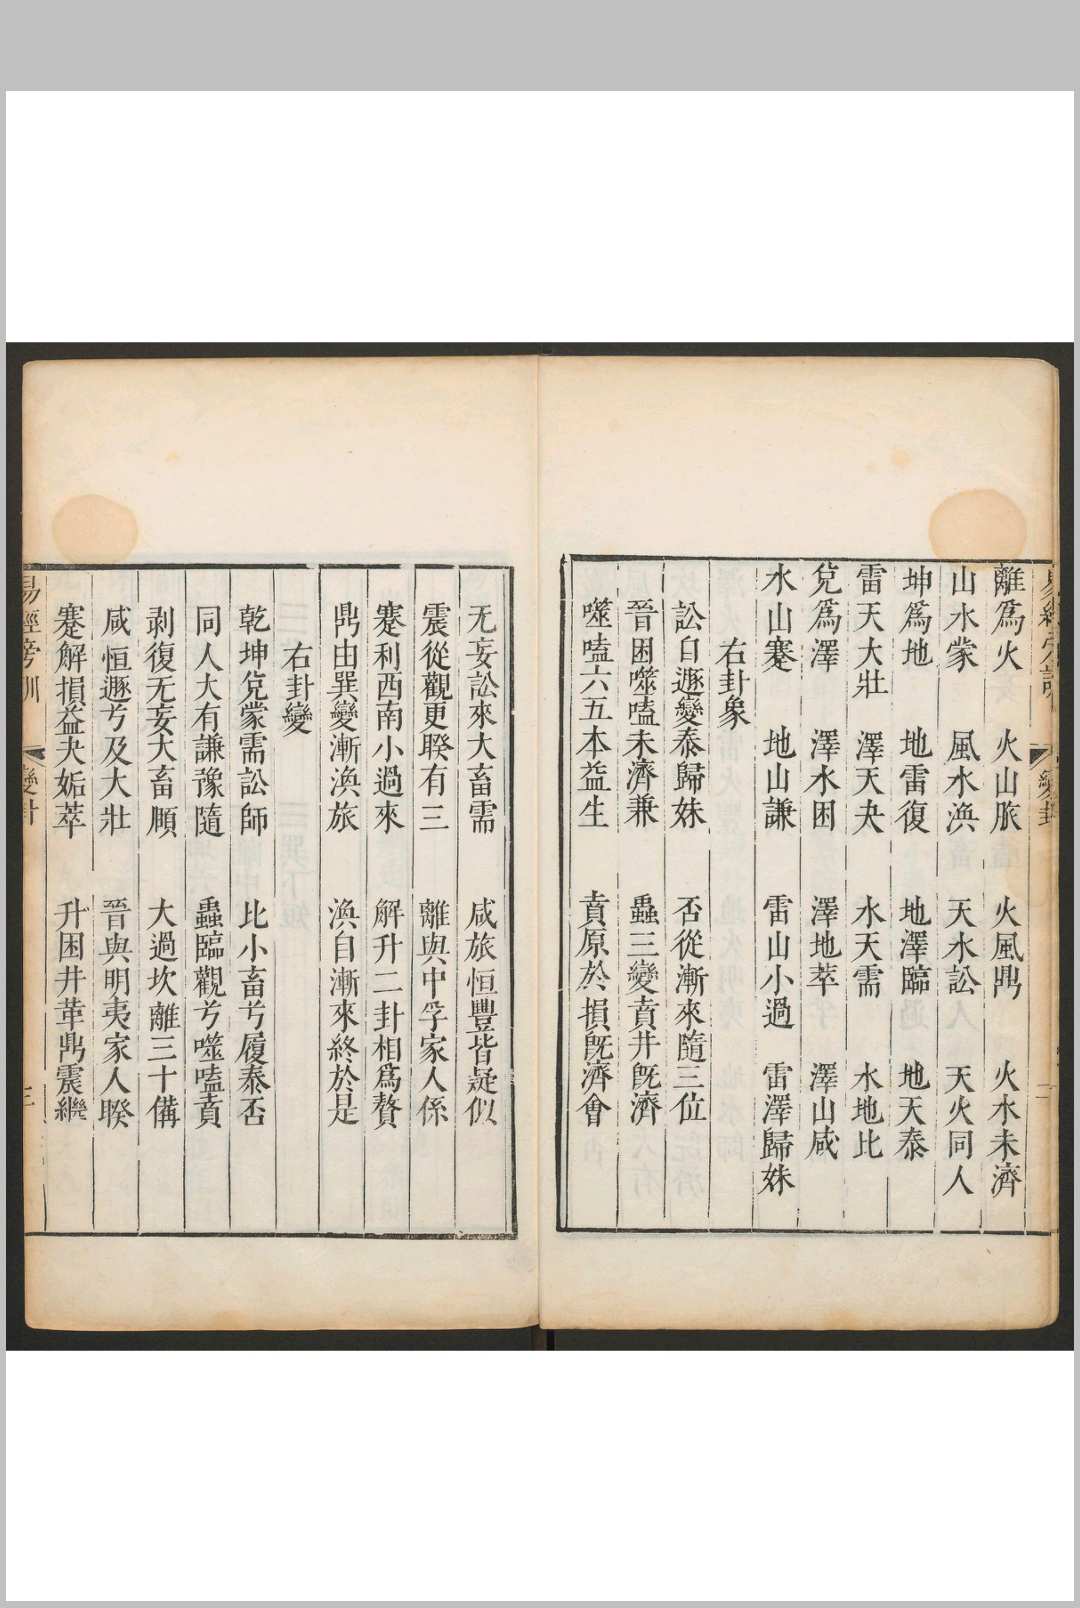 離爲火　火山旅　火風鼎　火水未濟
山水蒙　風水渙　天水訟　天火同人
坤爲地　地雷復　地澤臨　地天泰
雷天大壯　澤天夬　水天需　水地比
兌爲澤　澤水困　澤地萃　澤山咸
水山蹇　地山謙　雷山小過　雷澤歸妹
右卦象
訟自遯變泰歸妹　否從漸來隨三位
晉困噬嗑未濟兼　蠱三變賁井旣濟
噬嗑六五本益生　賁原於損旣濟會
无妄訟來大畜需　咸旅恒豐皆疑似
震從觀更睽有三　離與中孚家人係
蹇利西南小過來　解升二卦相爲贅
鼎由巽變漸渙旅　渙自漸來終於是
右卦變
乾坤屯蒙需訟師　比小畜兮履泰否
同人大有謙豫隨　蠱臨觀兮噬嗑賁
剥復无妄大畜頤　大過坎離三十備
咸恒遯兮及大壯　晉與明夷家人睽
蹇解損益夬姤萃　升困井革鼎震繼
易經旁訓　變卦　三